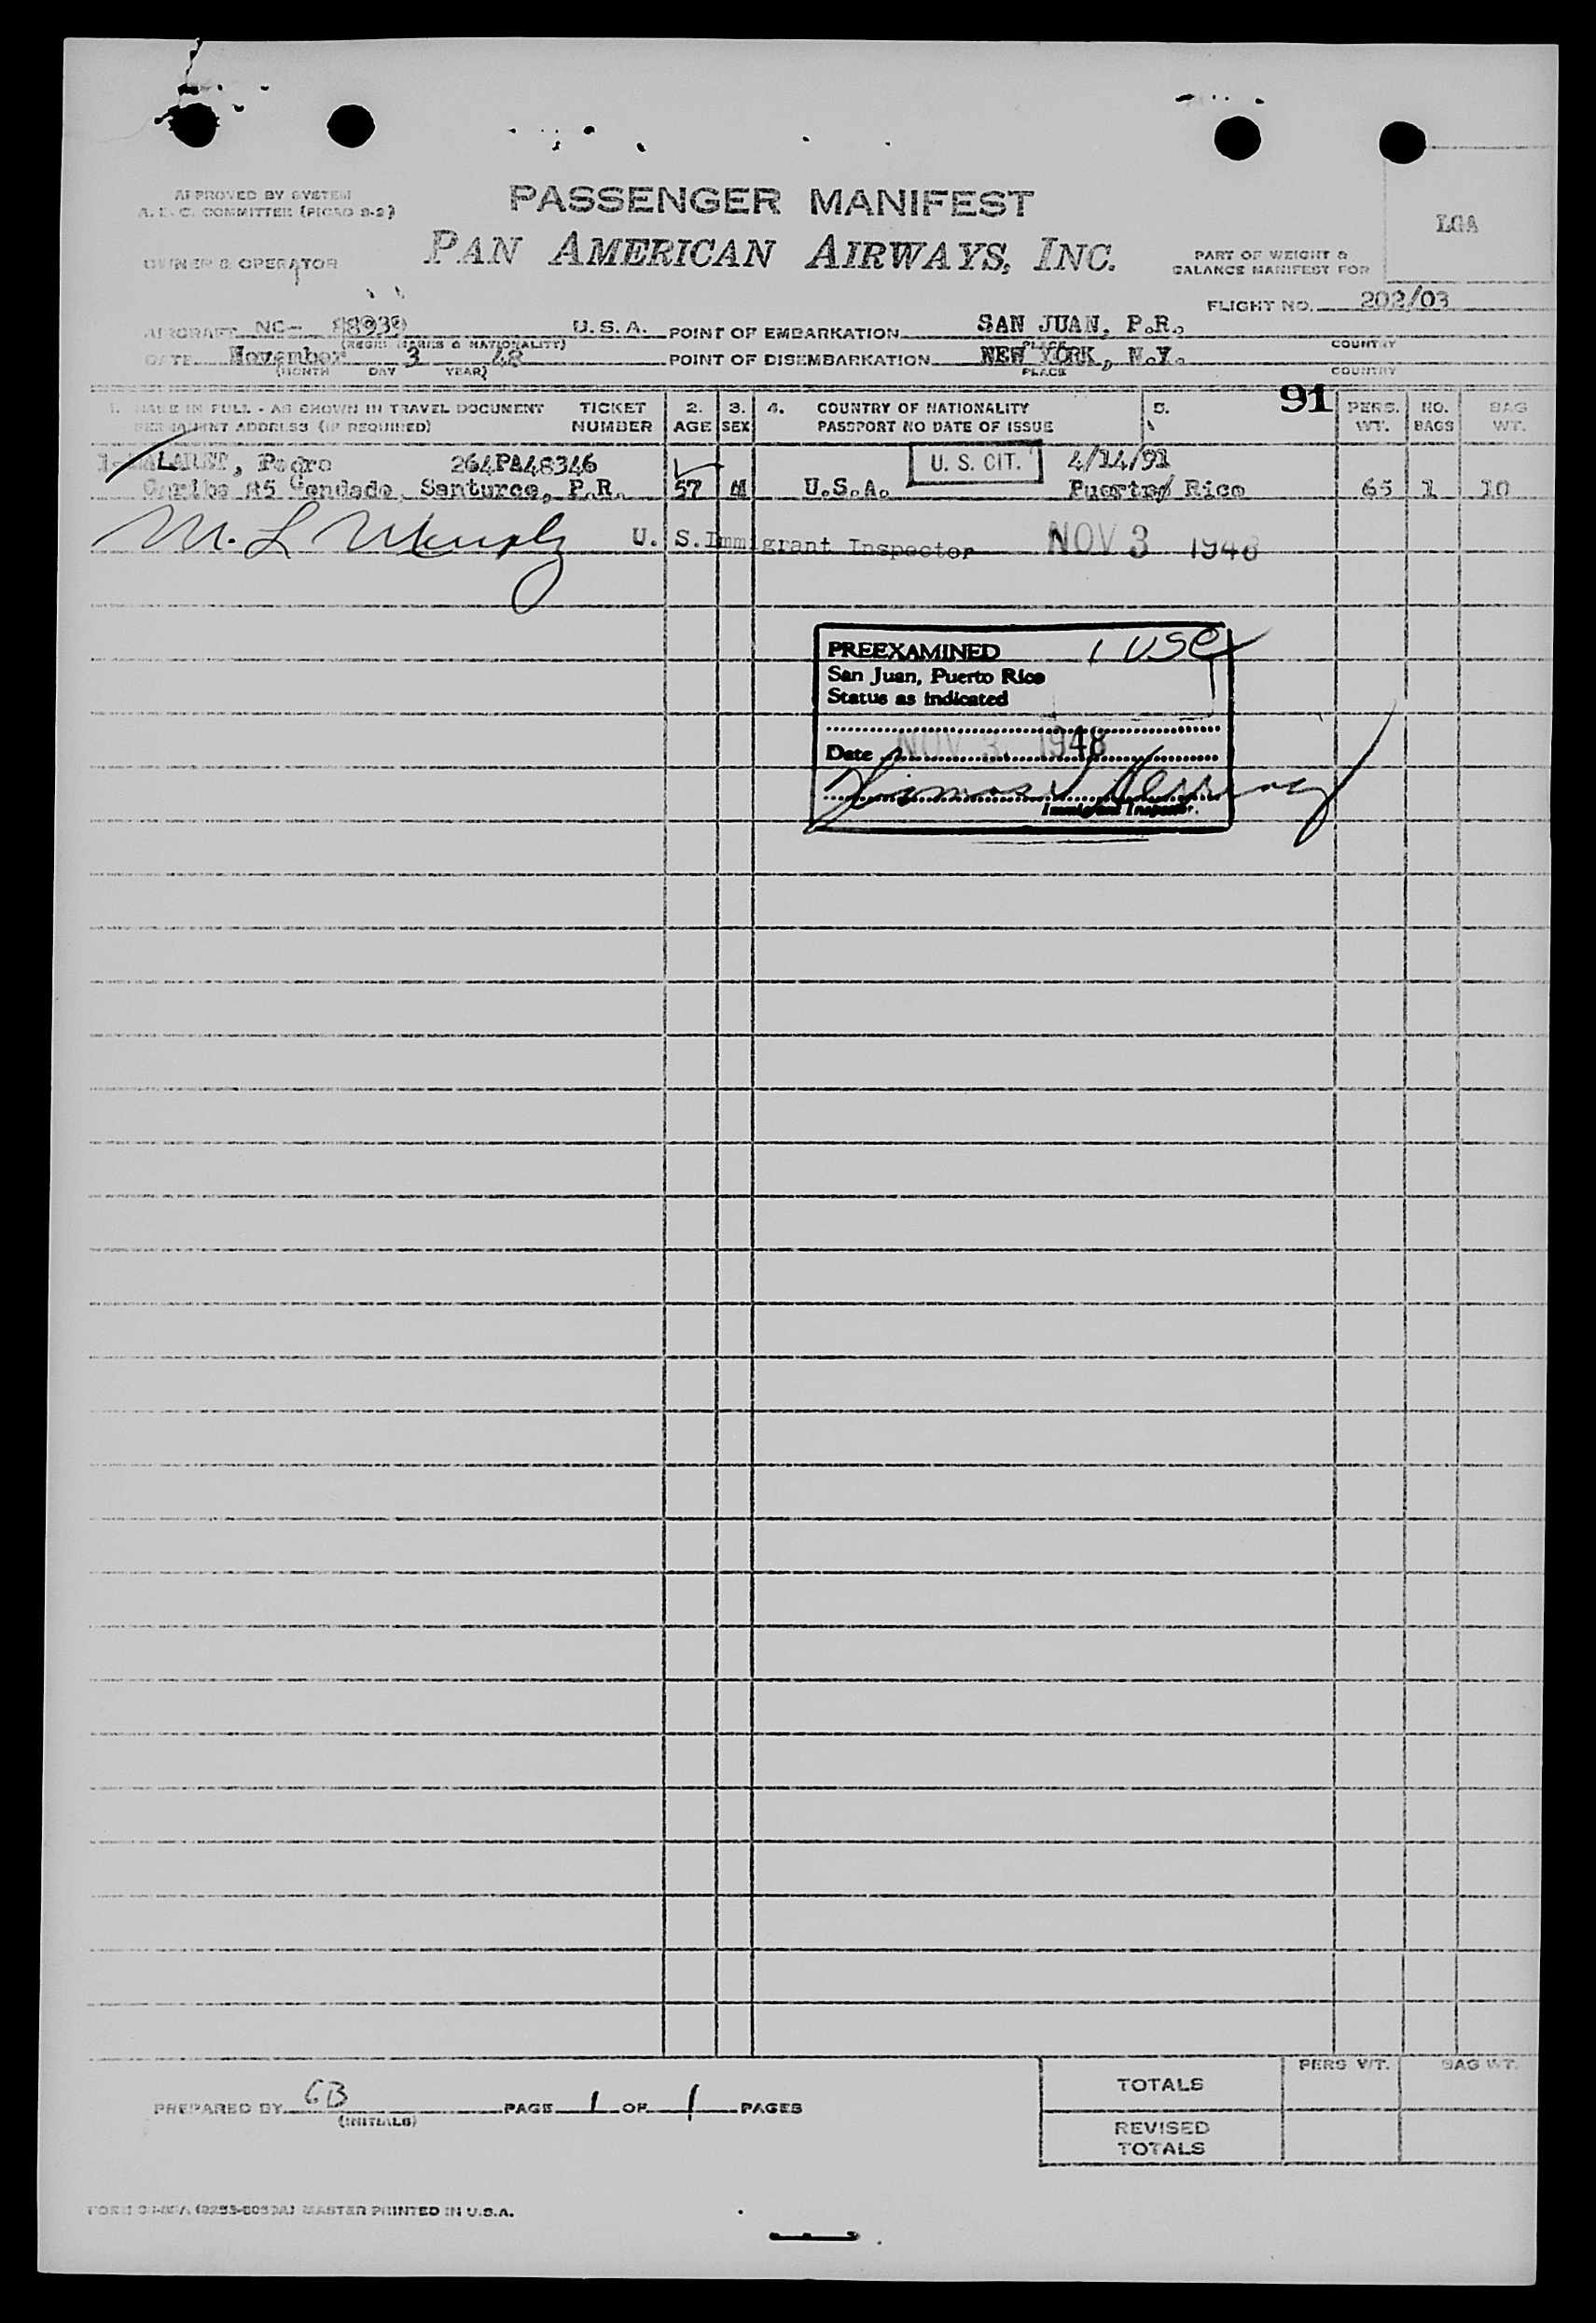 APPROVED BY SYSTEM
PASSENGER MANIFEST
LGA
PAN AMERICAN AIRWAYS, INC.
OWNER & OPERATOR
PART OF WEIGHT &
BALANCE MANIFEST FOR
FLIGHT NO. 202/03
AIRCRAFT NC- 88939 U.S.A. POINT OF EMBARKATION SAN JUAN, P.R.
(REGIS. MARKS & NATIONALITY) PLACE COUNTRY
DATE November 3 48 POINT OF DISEMBARKATION NEW YORK, N.Y.
(MONTH DAY YEAR) PLACE COUNTRY
91
1. NAME IN FULL - AS SHOWN IN TRAVEL DOCUMENT TICKET 2. 3. 4. COUNTRY OF NATIONALITY 5. PERS. NO. BAG
PERMANENT ADDRESS (IF REQUIRED) NUMBER AGE SEX PASSPORT NO DATE OF ISSUE WT. BAGS WT.
1-MALARET, Pedro 264PA48346 U. S. CIT. 4/14/91
Caribe #5 Condado, Santurce, P.R. 57 M U.S.A. Puerto Rico 65 1 10
M. L. Murphy U. S. Immigrant Inspector NOV 3 1948
PREEXAMINED 1 USC
San Juan, Puerto Rico
Status as indicated
Date NOV 3. 1948
Immigrant Inspector.
PERS WT. BAG WT.
TOTALS
PREPARED BY GB PAGE 1 OF 1 PAGES
(INITIALS)
REVISED
TOTALS
MASTER PRINTED IN U.S.A.